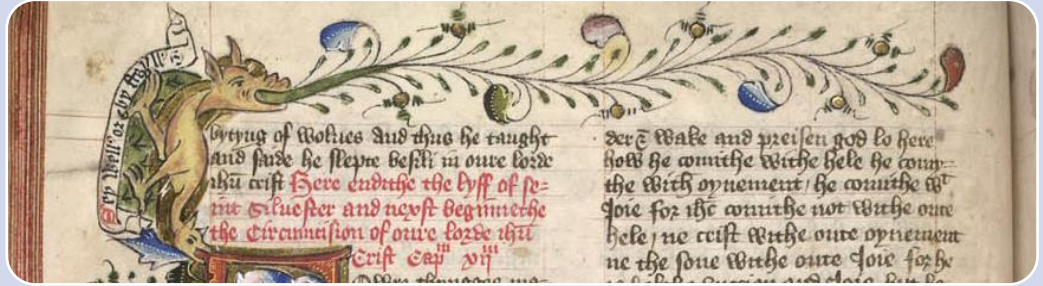 Sey Well or
bytyng of wolues and thus he taught
and saide he slepte besili in oure lorde
ihu crist Here endithe the lyff of se-
int Siluester and nexst beginnethe
the Circumcision of oure lorde ihu
Crist Cap xij
thynges
der wake and preisen god lo here
how he comithe withe hele he com-
the with oynement / he comithe wt
Joie for ihc comithe not withe oute
hele / ne crist withe oute oynement
ne the sone withe oute Joie for he